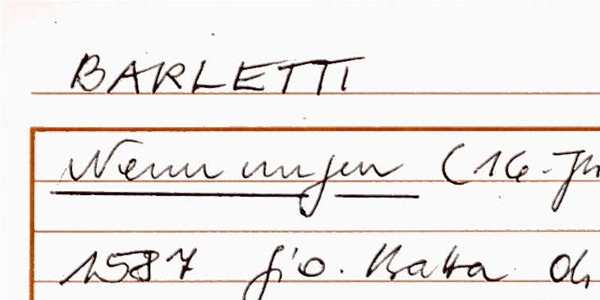 BARLETTI
Nennungen (16. Jh
1587 Gio. Batta